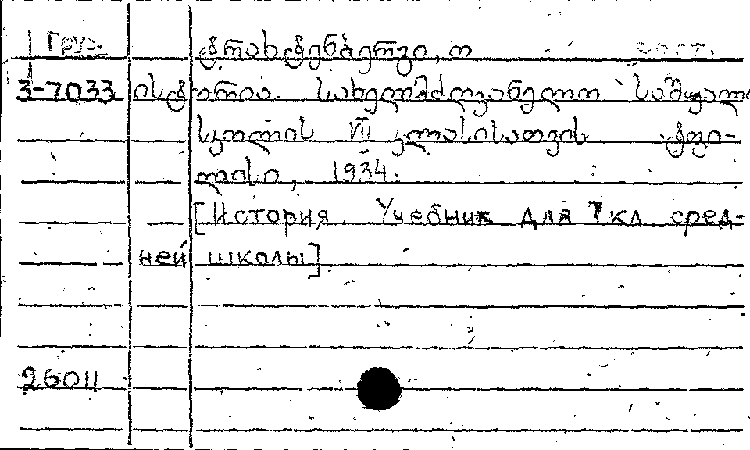 Груз. ტრახტენბერგი, ო
3-7033 ისტორია. სახელმძღვანელო საშუალო
სკოლის VII კლასისათვის ტფი-
ლისი, 1934.
[История. Учебник для 7 кл сред-
ней школы]
26011